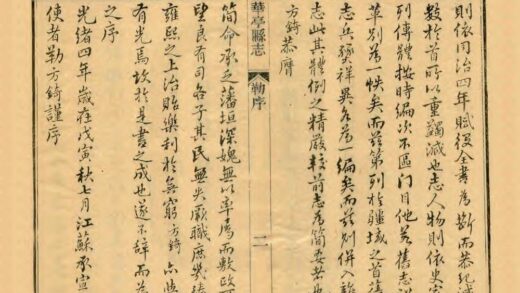 則依同治四年賦役全書為斷而恭紀
數於首所以重蠲減也志人物則依史家
列傳體按時編次不區門目他若舊志
革別為一帙矣而茲第列於疆域之首舊
志兵燹祥異各為一編矣而茲別併入
志此其體例之精嚴較前志為簡要者也
方錡恭膺
華亭縣志 勒序 二
簡命承乏藩垣深媿無以率屬而敷政所
望良有司各子其民無失厥職庶幾臻
雍熙之上治貽樂利於無窮方錡亦與
有光焉故於是書之成也遂不辭而為
之序
光緒四年歲在戊寅秋七月江蘇承宣
使者勒方錡謹序